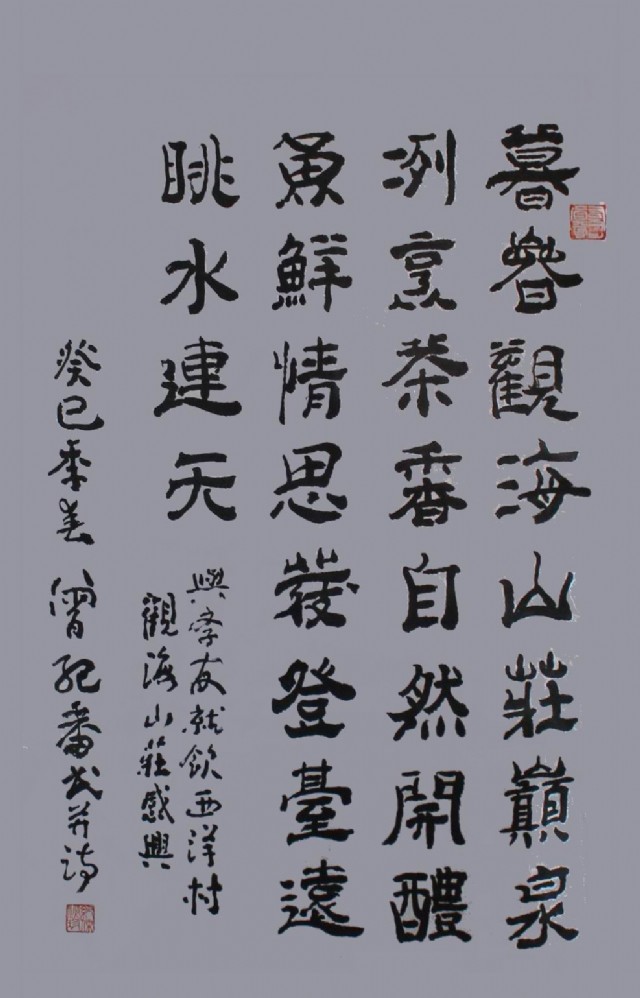 暮春觀海山莊巔泉
洌烹茶香自然開醴
魚鮮情思發登臺遠
眺水連天
與学友就飲西洋村
觀海山莊感興
癸巳季春 紀番书并诗